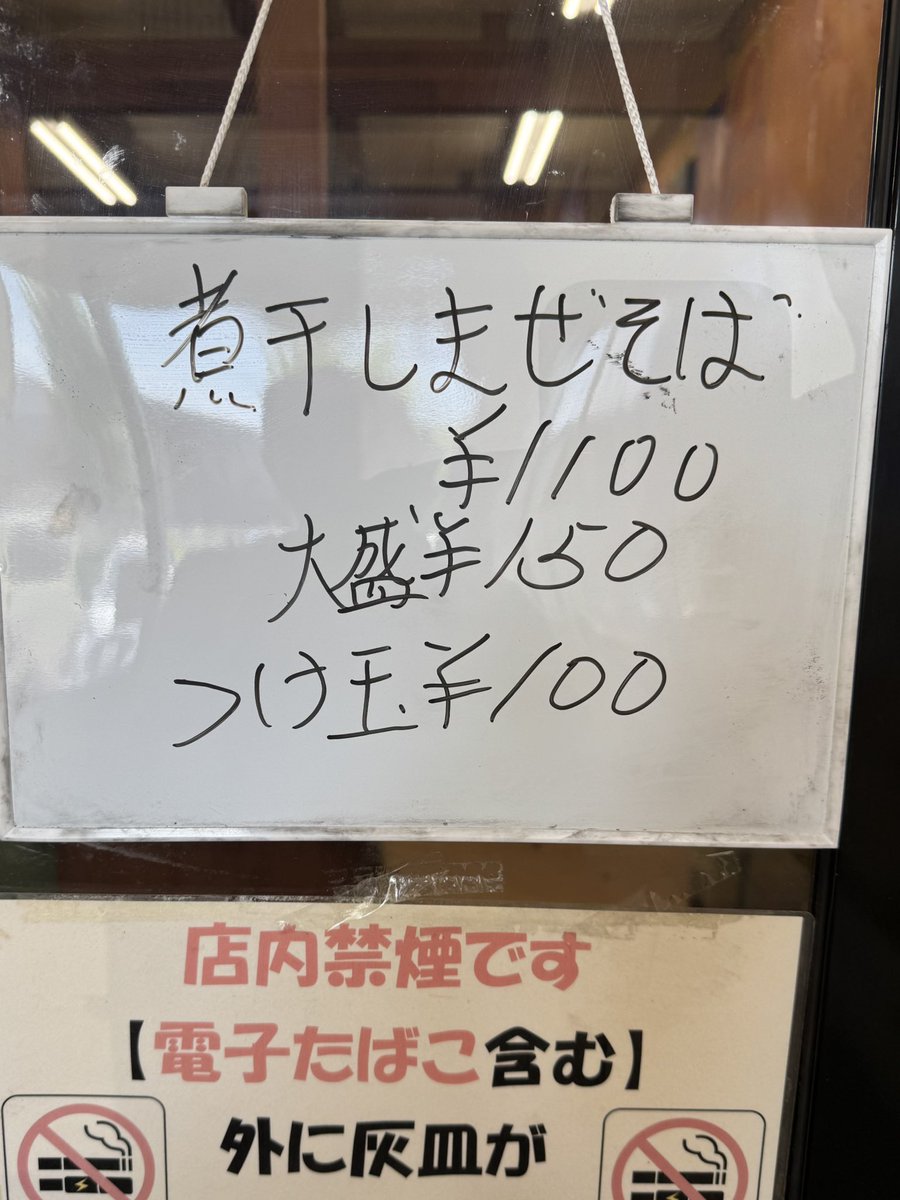 煮干しまぜそば
¥1100
大盛¥150
つけ玉¥100
店内禁煙です
【電子たばこ含む】
外に灰皿が